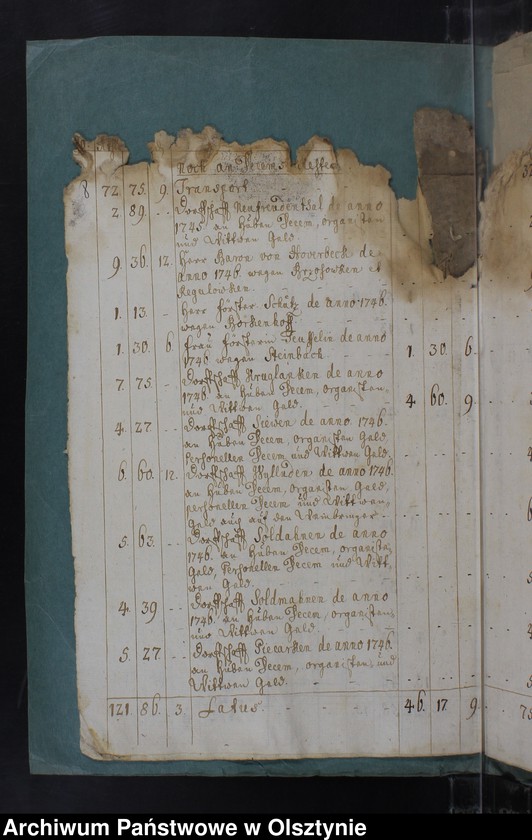 Noch an Decem
8 72. 75. 9. Transport
2 89. Dorffschafft Neufreudenthal de anno
1745. an Huben Decem, organisten
und Wittwen Geld.
9. 36. 12. Herr Baron von Hoverbeck de
anno 1746. wegen et
Regulowken.
1. 13. Herr Förster Schütz de anno 1746.
wegen Borkenhoff
1. 30. 6. Frau Försterin de anno
1746 wegen Steinbach 1. 30. 6.
7. 75. Dorffschafft Kruglanken de anno
1746. an Huben Decem, organisten
und Wittwen Geld. 4. 60. 9.
4. 27 Dorffschafft Siewen de anno 1746.
an Huben Decem, organisten Geld,
Personellen Decem und Wittwen Geld.
6. 60. 12. Dorffschafft de anno 1746.
an Huben Decem, organisten Geld,
personellen Decem und Wittwen
Geld auch auf den
5. 63. Dorffschafft Soldahnen de anno
1746. an Huben Decem, organisten
Geld, Personellen Decem und Witt-
wen Geld.
4. 39 Dorffschafft Soldmahnen de anno
1746. an Huben Decem, organisten
und Wittwen Geld.
5. 27. Dorffschafft Piecarken de anno 1746.
an Huben Decem, organisten und
Wittwen Geld.
121. 86. 3. Latus 46. 17 9.
Archiwum Państwowe w Olsztynie